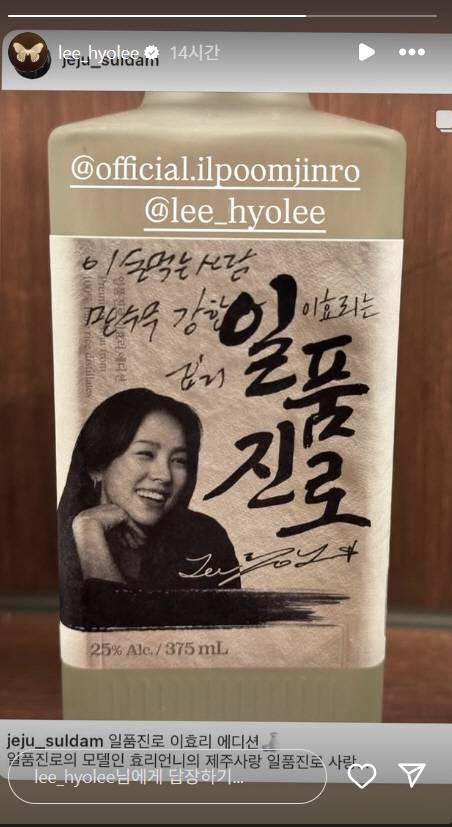 lee_hyolee 14시간
jeju_suldam
@official.ilpoomjinro
@lee_hyolee
이 술 먹는 사람
만수무강할
효리
이효리는
일품
진로
25% Alc. / 375 mL
jeju_suldam 일품진로 이효리 에디션
일품진로의 모델인 효리언니의 제주사랑 일품진로 사랑
lee_hyolee님에게 답장하기...